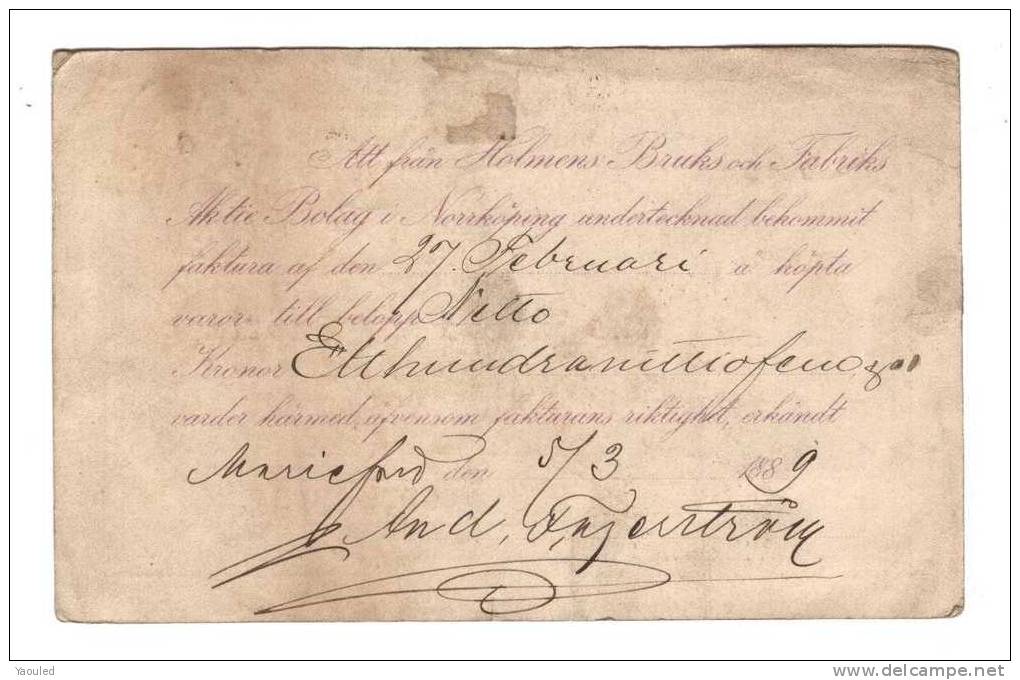 Att från Holmens Bruks och Fabriks
Aktie Bolag i Norrköping undertecknad bekommit
faktura af den 27. Februari å köpta
varor till belopp Netto
Kronor
varder härmed, äfvensom fakturans riktighet, erkändt
Mariefred den 5/3 1889
And. Fagerström
Yaouled
delcampe.net